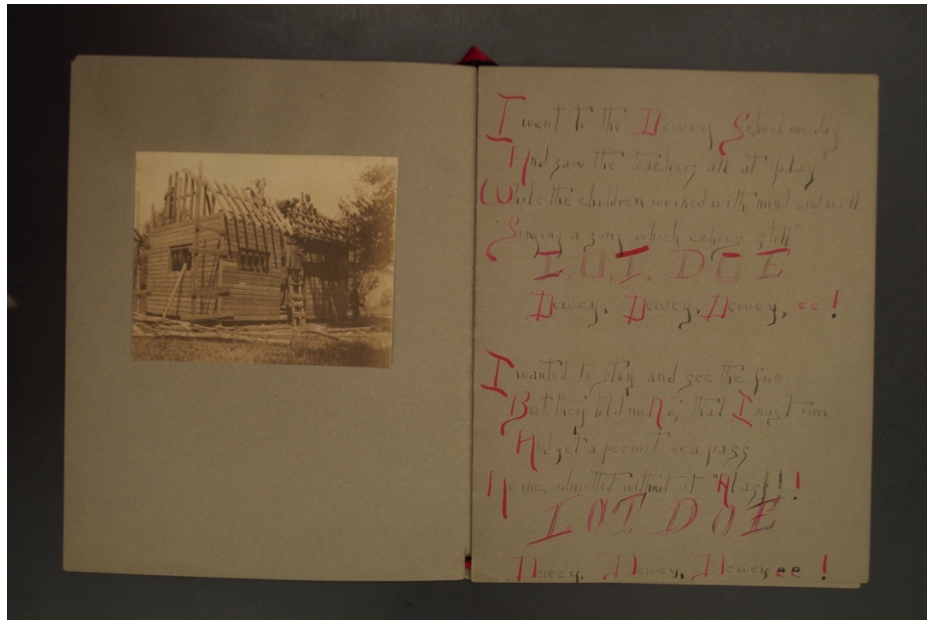 I went to the Dewey School one day
And saw the teachers all at play
While the children worked with mind and will
Singing a song which echoes still
I, O, I, D O E
Dewey, Dewey, Dewey, ee !
I wanted to stay and see the fun
But they told me No, that I must run
And get a permit or a pass
No one admitted without it "Alas!! !
I O I D O E
Dewey, Dewey, Dewey ee !